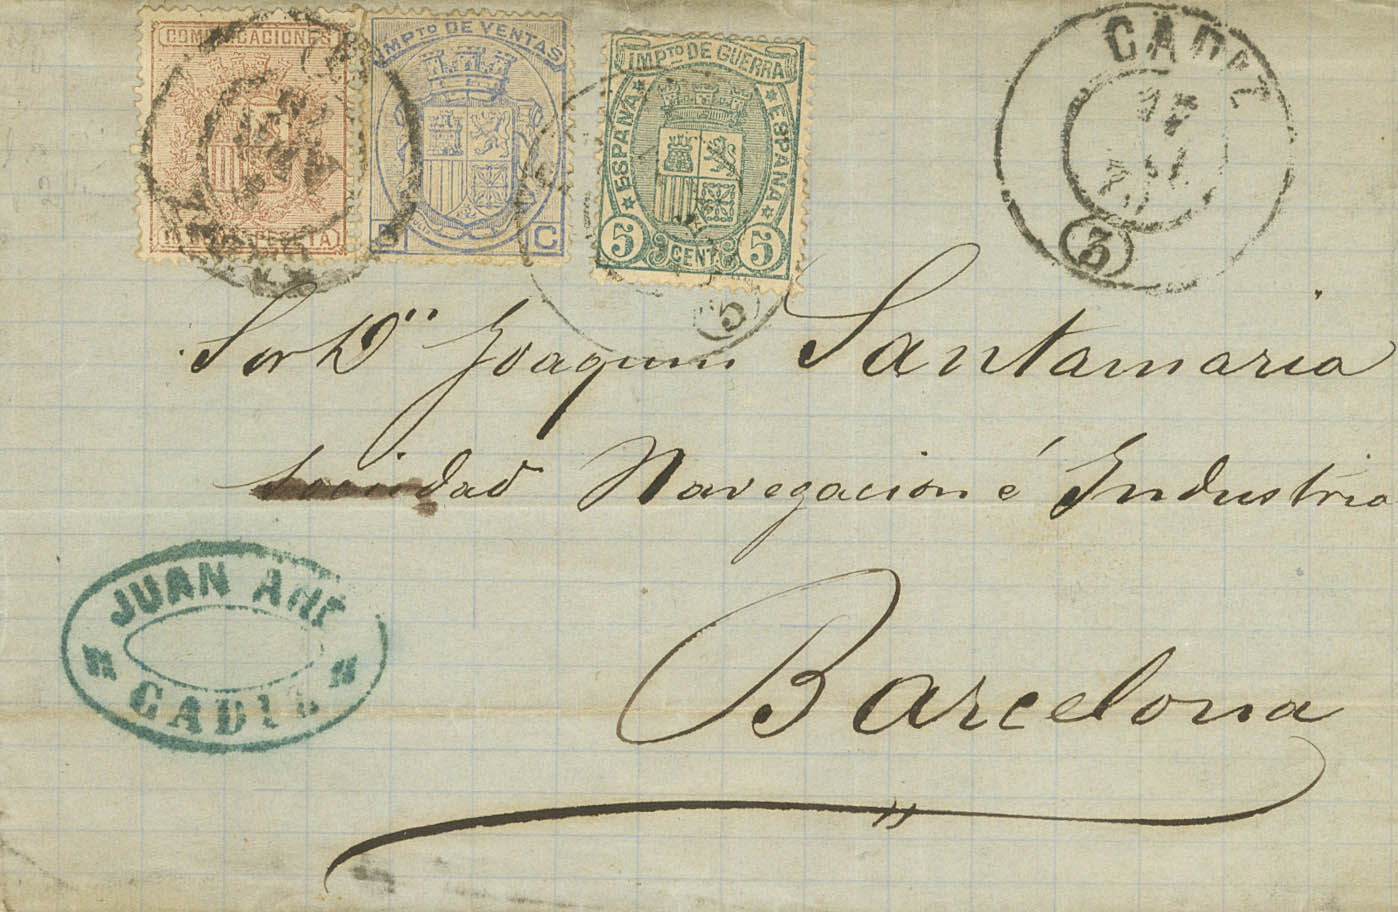 COMUNICACIONES
PESETA
IMPTO DE VENTAS
C
IMPTO DE GUERRA
ESPAÑA
ESPAÑA
5 CENT. 5
5
CADIZ
3
Sor Dn Joaquin Santamaria
Sociedad Navegacion é Industria
Barcelona
JUAN
CADIZ